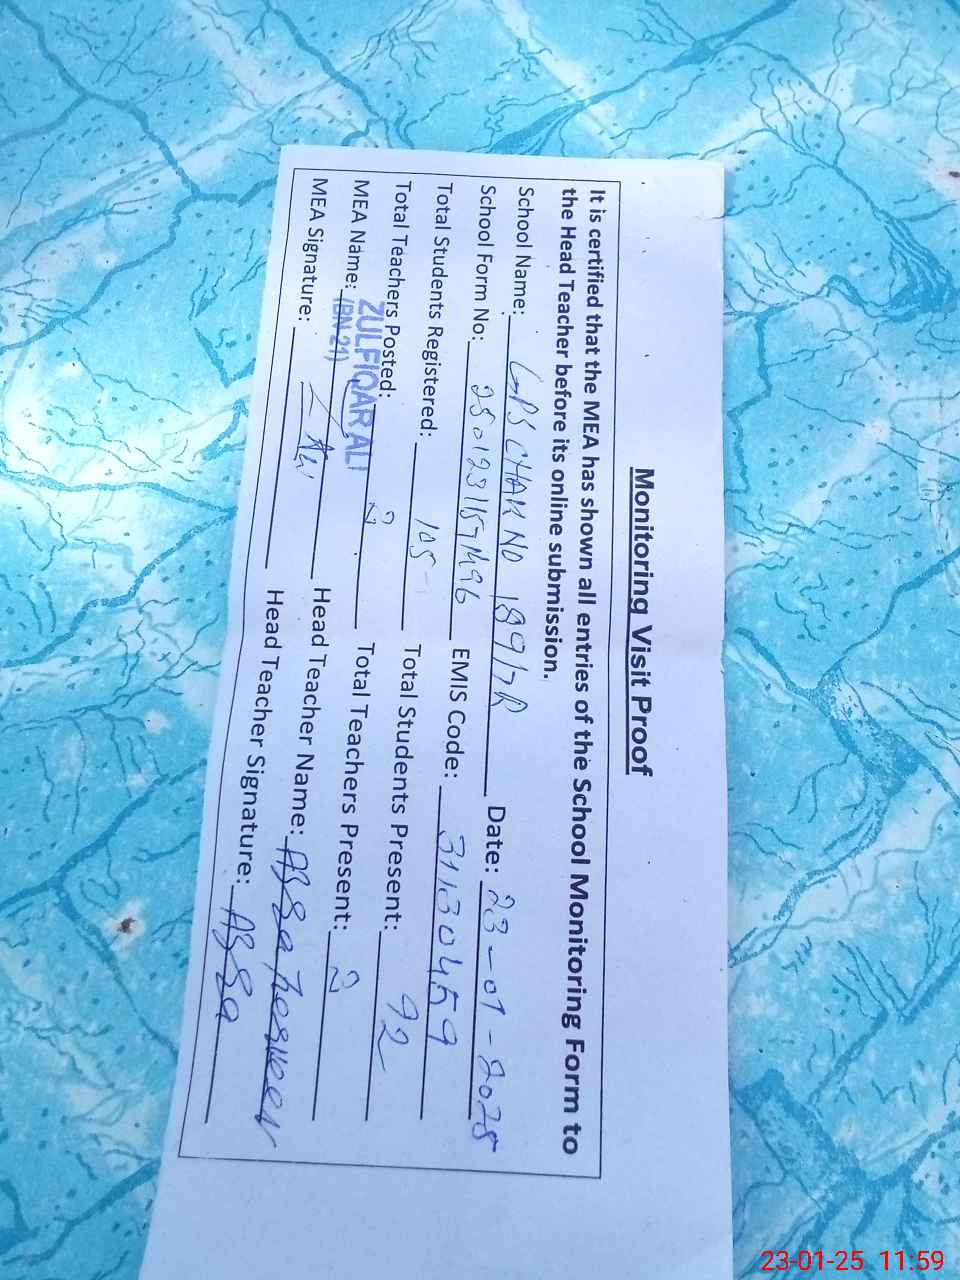 Monitoring Visit Proof
It is certified that the MEA has shown all entries of the School Monitoring Form to
the Head Teacher before its online submission.
School Name: GPS CHAK NO 189/7R Date: 23-01-2025
School Form No: EMIS Code: 31130459
Total Students Registered: 105 Total Students Present: 92
Total Teachers Posted: 2 Total Teachers Present: 2
MEA Name: ZULFIQAR ALI (BN 21) Head Teacher Name: Azra Perveen
MEA Signature: Ali Head Teacher Signature: Azra
23-01-25 11:59